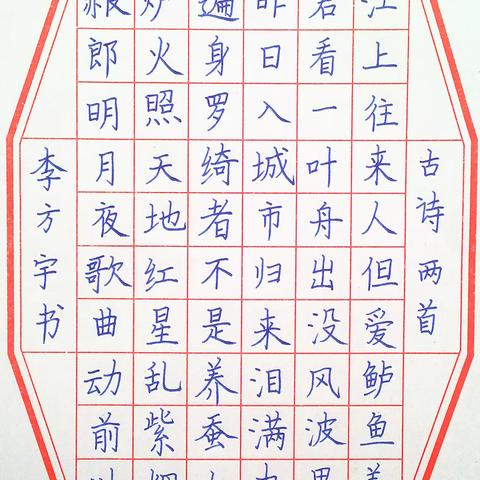 古诗两首
江上往来人但爱鲈鱼美
君看一叶舟出没风波里
昨日入城市归来泪满巾
遍身罗绮者不是养蚕人
炉火照天地红星乱紫烟
赧郎明月夜歌曲动前川
李方宇书